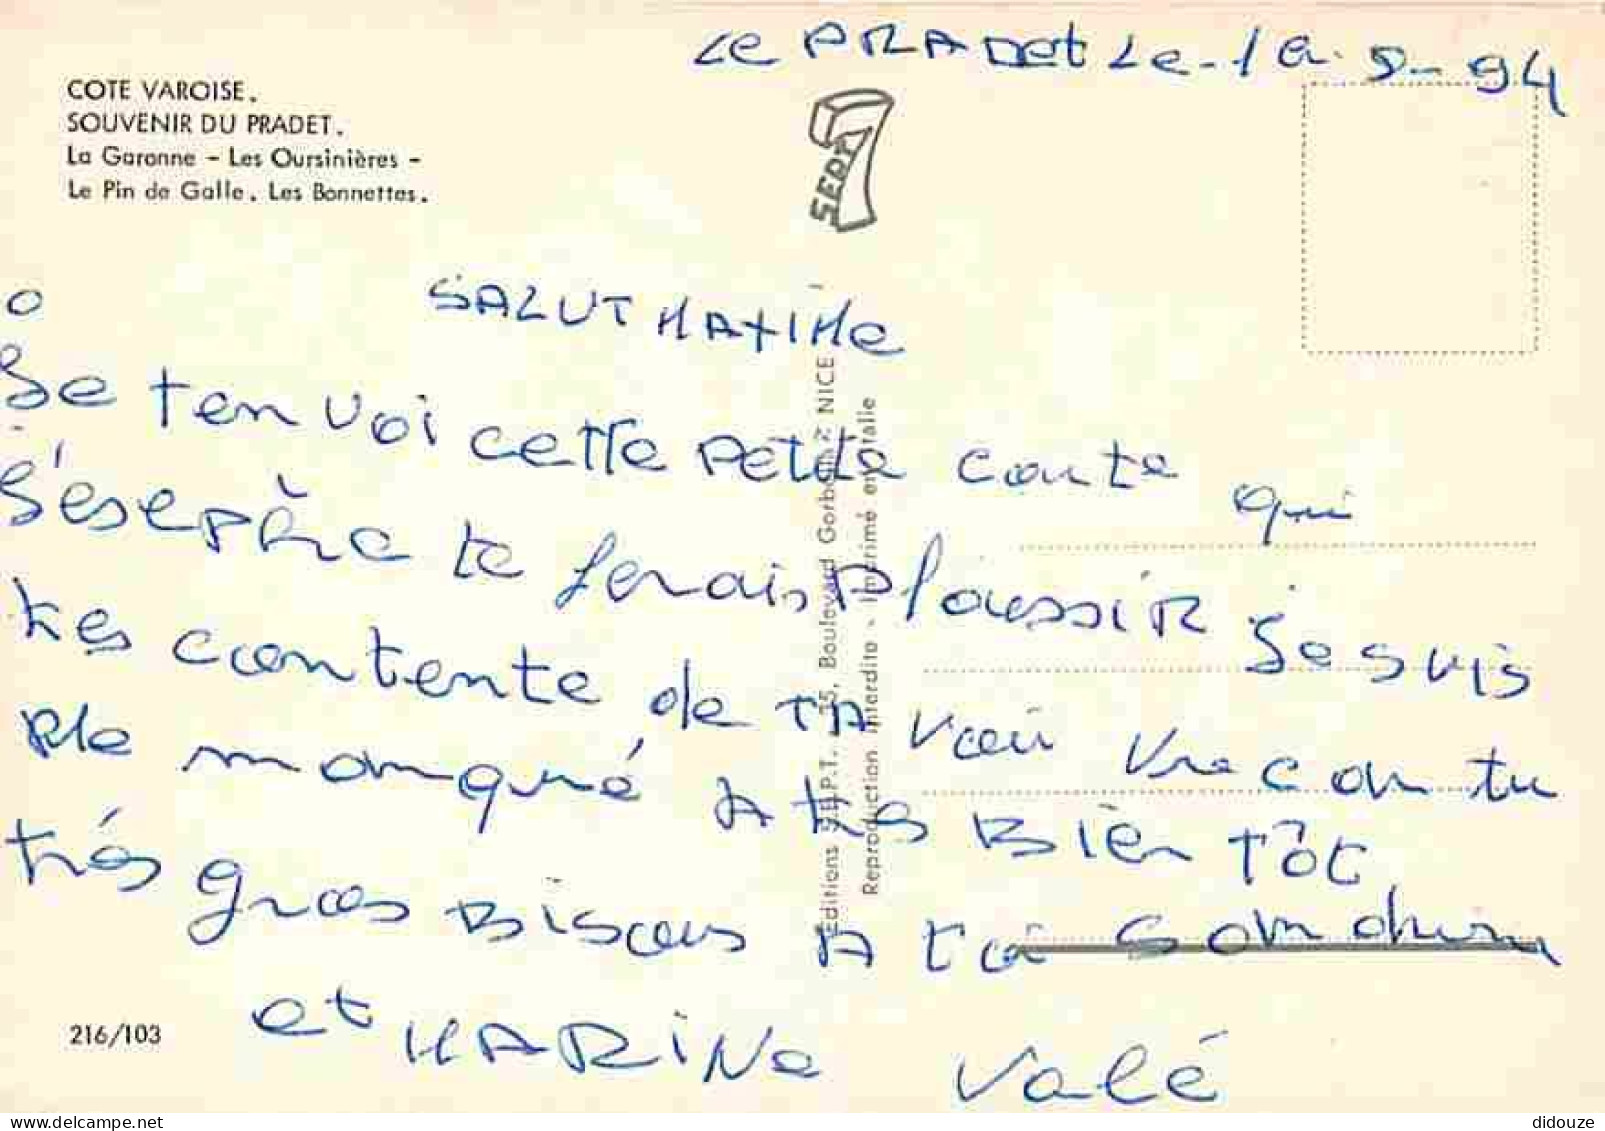 Le PRADet Le - 1 5 - 94
COTE VAROISE.
SOUVENIR DU PRADET.
La Garonne - Les Oursinières -
Le Pin de Galle. Les Bonnettes.
SEPT
SALUT MAXIMe
Je ten voi cette petite carte qui
J'esepère te ferais plaissir Je suis
tres contente de TA voir
me manqué A tres BièN TÔT
très gros Bisous A toi Sandrine
et MARiNe Valé
216/103
Editions S.E.P.T. - 15, Boulevard NICE
Reproduction interdite - Imprimé en Italie
didouze @ delcampe.net